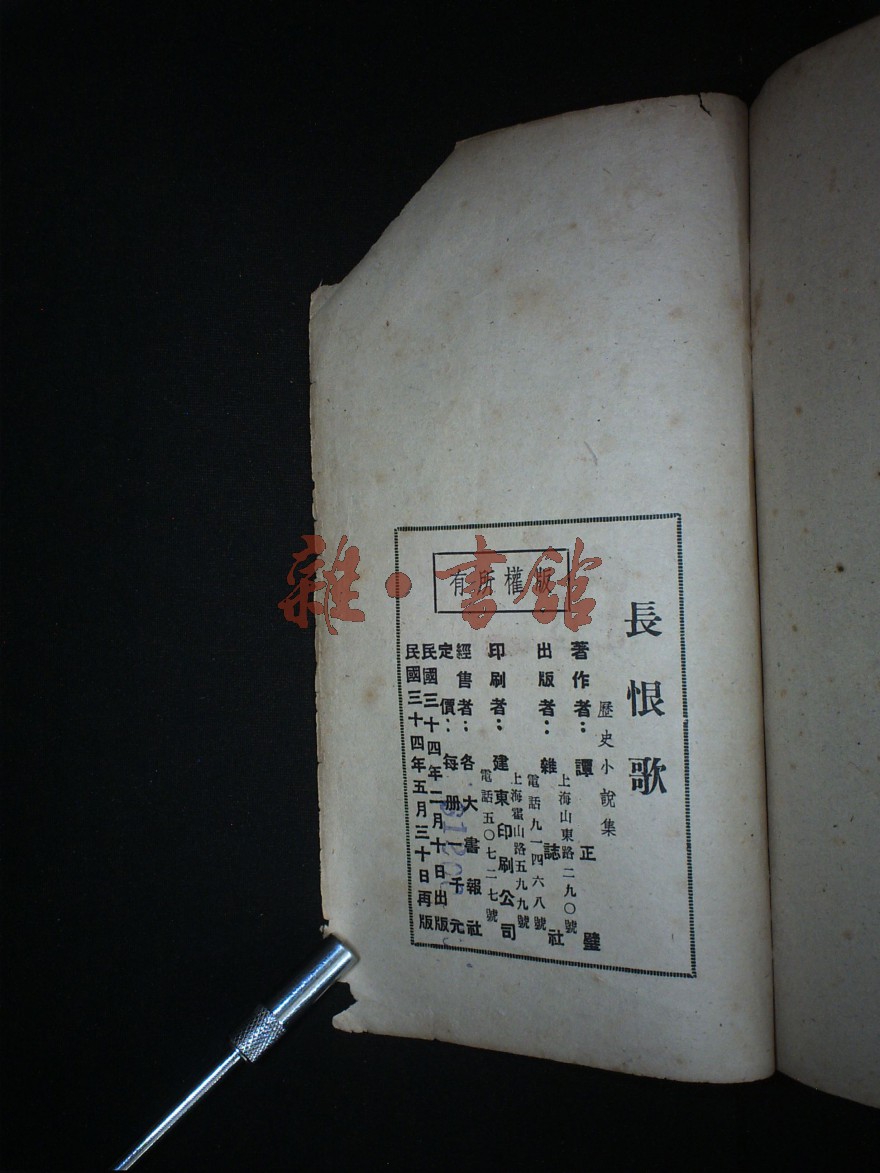 長恨歌
歷史小說集
版權所有
著作者：譚正璧
出版者：雜誌社
上海山東路二九〇號
電話九一四六八號
印刷者：建東印刷公司
上海霍山路五九九號
電話五〇七二七號
經售者：各大書報社
定價：每册一千元
民國三十四年二月十日出版
民國三十四年五月三十日再版
雜·書館